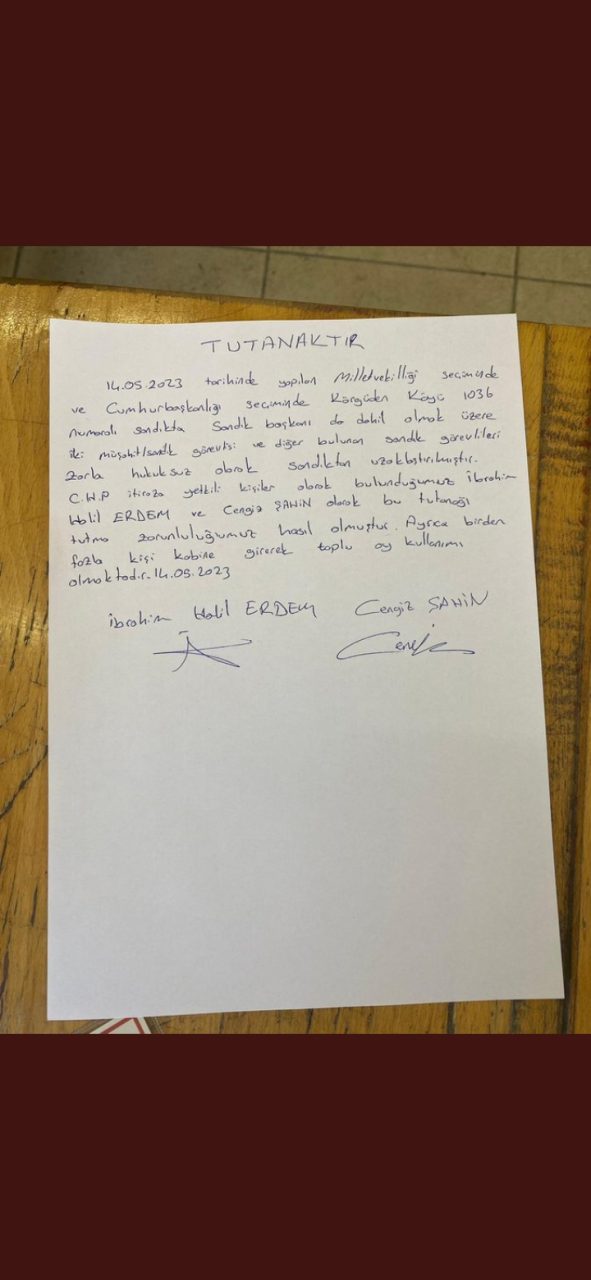 TUTANAKTIR
14.05.2023 tarihinde yapılan Milletvekilliği seçiminde
ve Cumhurbaşkanlığı seçiminde Kargüden Köyü 1036
numaralı sandıkta Sandık başkanı da dahil olmak üzere
iki müşahit/sandık görevlisi ve diğer bulunan sandık görevlileri
zorla hukuksuz olarak sandıktan uzaklaştırılmıştır.
C.H.P itiraza yetkili kişiler olarak bulunduğumuz İbrahim
Halil ERDEM ve Cengiz ŞAHİN olarak bu tutanağı
tutma zorunluluğumuz hasıl olmuştur. Ayrıca birden
fazla kişi kabine girerek toplu oy kullanımı
olmaktadır. 14.05.2023
İbrahim Halil ERDEM Cengiz ŞAHİN